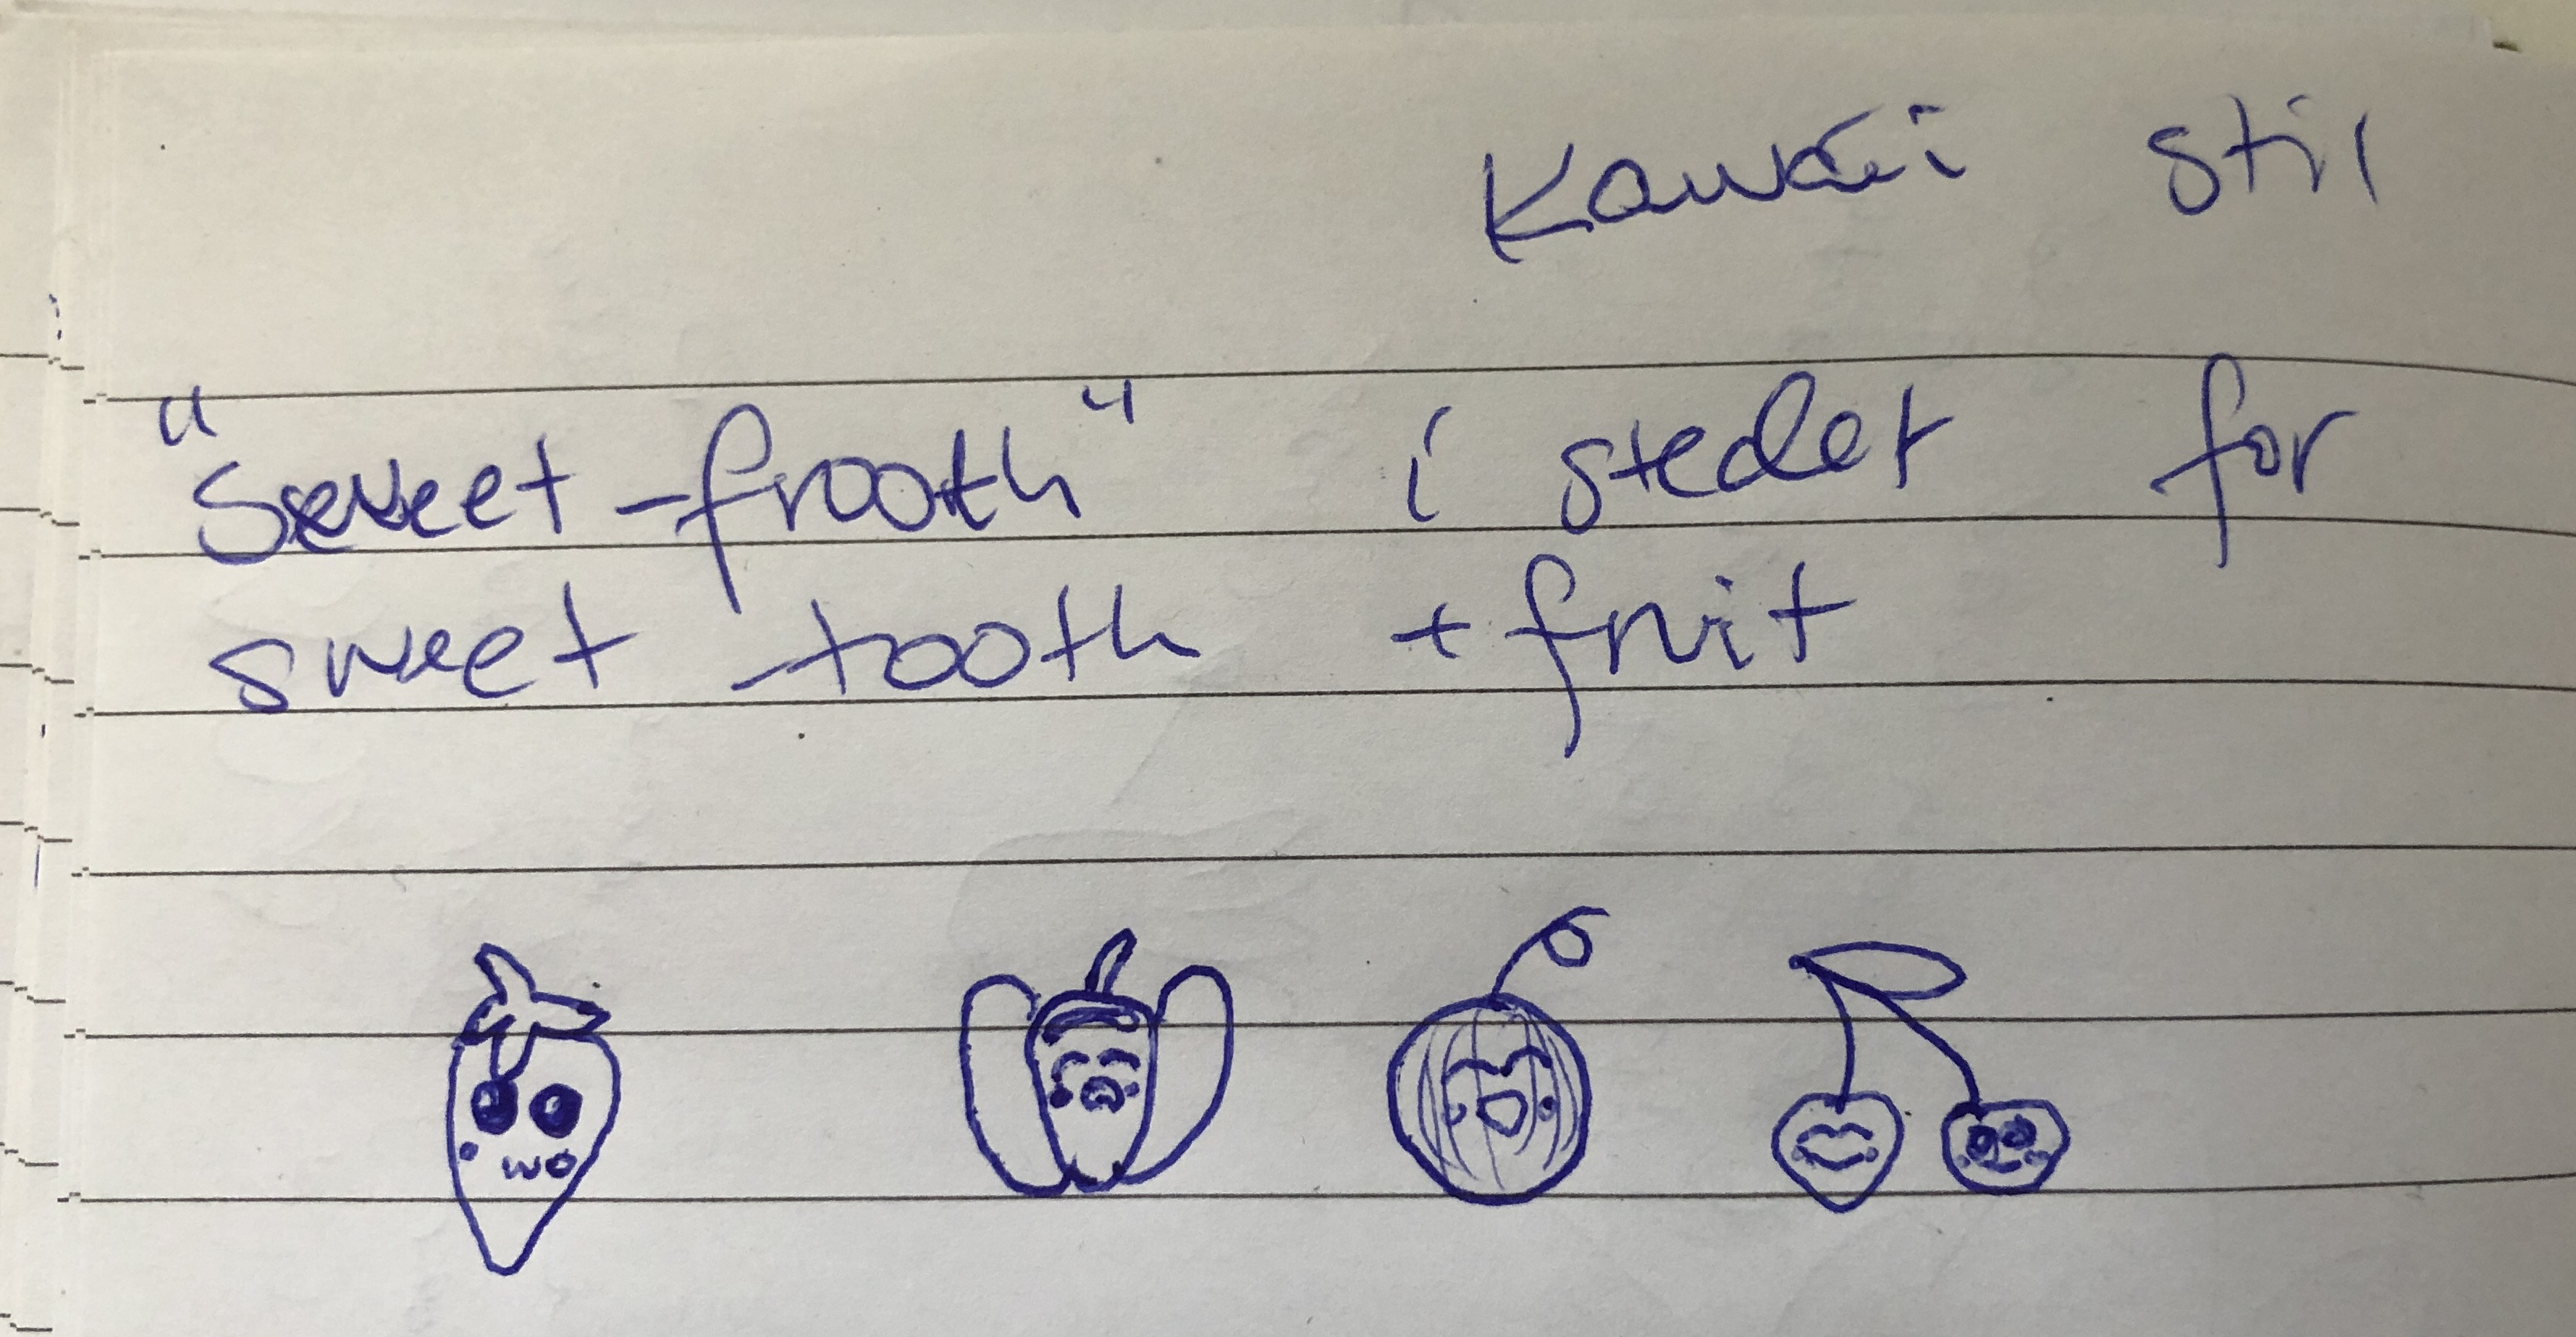 Kawaii stil
"Sweet-frooth" i stedet for
sweet tooth + fruit